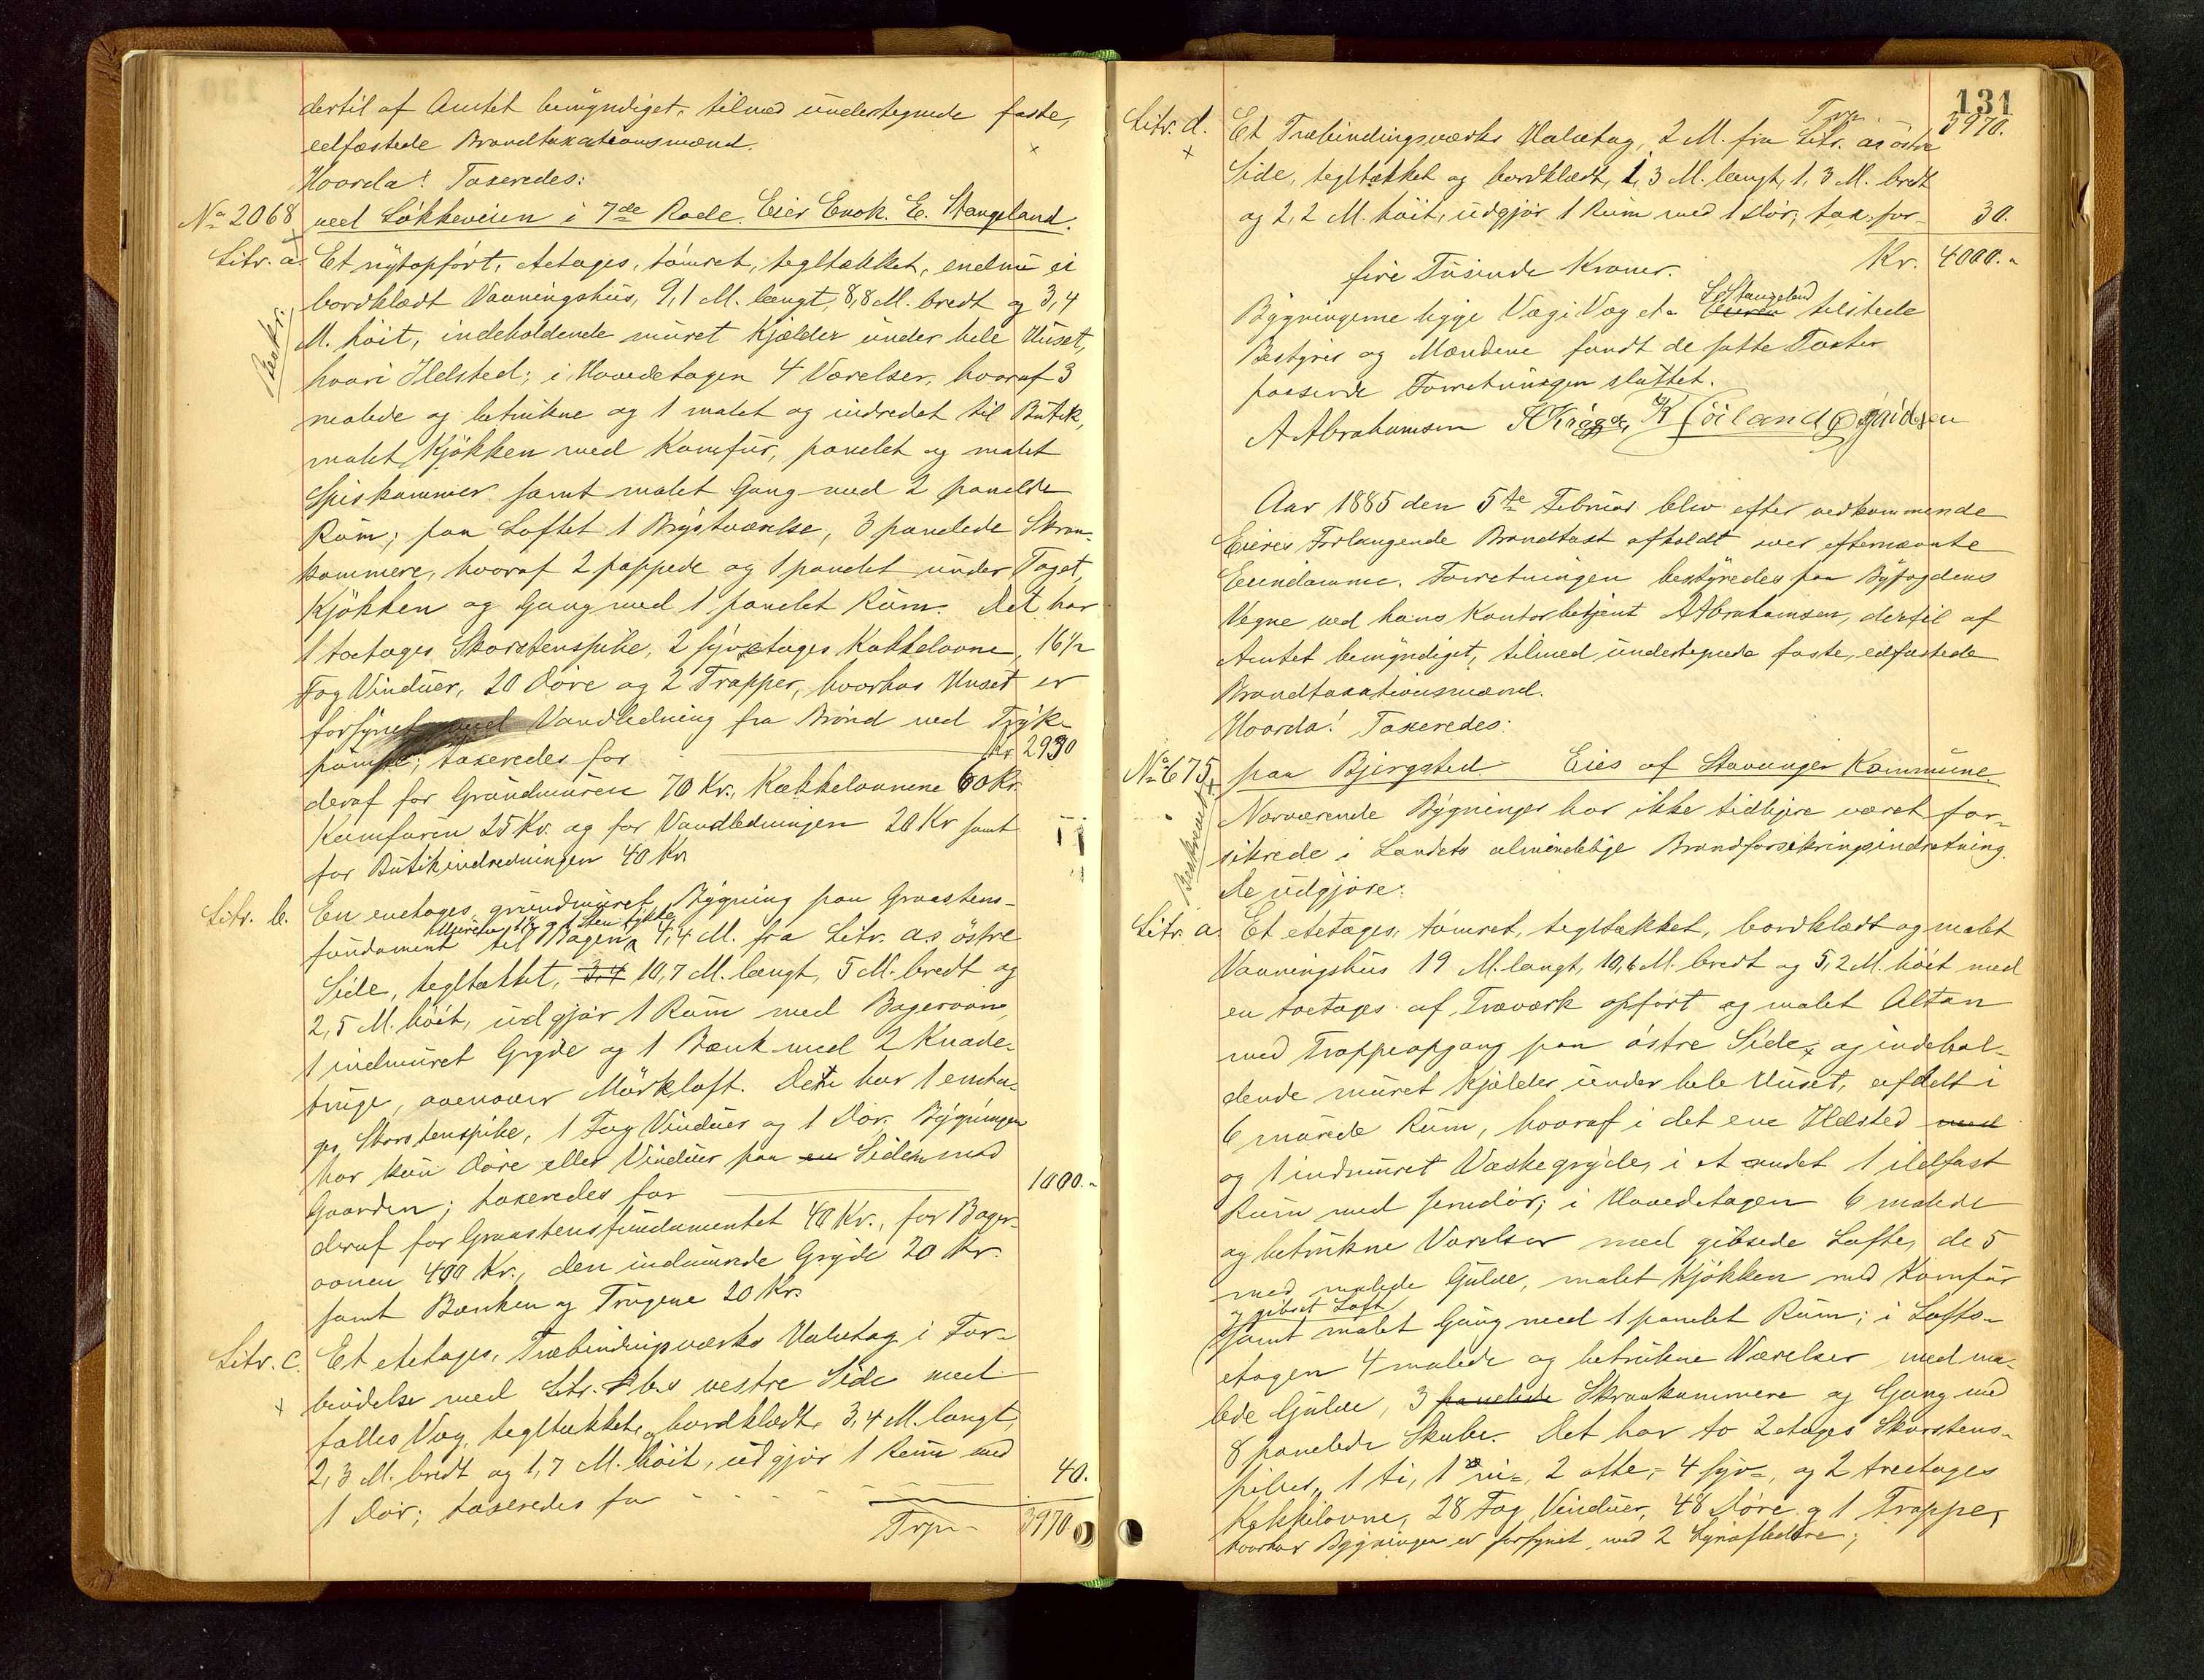 dertil af Amtet bemyndiget, tilmed undertegnede faste,
edfæstede Brandtaxationsmænd.
Hvorda! Taxeredes:
No 2068 ved Løkkeveien i 7de Rode. Eier Enok. E. Stangeland.
Litr. a. Et nyopført, etetages, tømret, tegltækket, endnu ei
Beskr.
bordklædt Vaaningshus, 9,1 M. langt, 8,8 M. bredt og 3,4
M. høit, indeholdende muret Kjælder under hele Huset,
hvori Ildsted; i Hovedetagen 4 Værelser, hvoraf 3
malede og betrukne og 1 malet og indredet til Butik,
malet Kjøkken med Komfur, panelet og malet
Spiskammer samt malet Gang med 2 panelede
Rum; paa Loftet 1 Brystværelse, 3 panelede Skraa-
kammere, hvoraf 2 pappede og 1 panelet under Taget,
Kjøkken og Gang med 1 panelet Rum. Det har
1 toetages Skorstenspibe, 2 syvetages Kakkelovne, 16½
Fag Vinduer, 20 Døre og 2 Trapper, hvorhos Huset er
forsynet med Vandledning fra Brønd ved Tryk-
pumpe; taxeredes for Kr 2930
deraf for Grundmuren 70 Kr., Kakkelovnene 60 Kr.
Komfuren 25 Kr. og for Vandledningen 20 Kr samt
for Butikindredningen 40 Kr.
Litr. b. En enetages, grundmuret Bygning paa Graastens-
fundament til Bageri, 4,4 M. fra Litr. a.s østre
Side, tegltækket, 3,4 10,7 M. langt, 5 M. bredt og
2,5 M. høit, udgjør 1 Rum med Bagerovn,
1 indmuret Gryde og 1 Bænk med 2 Knade-
truge, ovenover Mørkloft. Dette har 1 eneta-
ges Skorstenspibe, 1 Fag Vinduer og 1 Dør. Bygningen
har kun Døre eller Vinduer paa en Siden mod
Gaarden; taxeredes for 1000.-
deraf for Graastensfundamentet 40 Kr., for Bager-
ovnen 400 Kr., den indmurede Gryde 20 Kr.
samt Bænken og Trugene 20 Kr.
Litr. c. Et etetages, Træbindingsværks Halvtag i For-
bindelse med Litr. b.s vestre Side med
fælles Væg, tegltækket og bordklædt, 3,4 M. langt,
2,3 M. bredt og 1,7 M. høit, udgjør 1 Rum med
1 Dør; taxeredes for 40.
Trp. 3970.
131
Trp. 3970.
Litr. d. Et Træbindingsværks Halvtag, 2 M. fra Litr. a.s østre
Side, tegltækket og bordklædt, 1,3 M. langt, 1,3 M. bredt
og 2,2 M. høit, udgjør 1 Rum med 1 Dør; tax. for 30.
fire Tusinde Kroner. Kr. 4000.-
Bygningerne ligge Væg i Væg etc. Eieren E Stangeland tilstede
Bestyrer og Mændene fandt de satte Taxter
passende Forretningen sluttet.
A Abrahamsen
Aar 1885 den 5te Februar blev efter vedkommende
Eieres Forlangende Brandtaxt afholdt over efternævnte
Eiendomme. Forretningen bestyredes paa Byfogdens
Vegne ved hans Kontorbetjent A Abrahamsen, dertil af
Amtet bemyndiget, tilmed undertegnede faste, edfæstede
Brandtaxationsmænd.
Hvorda! Taxeredes:
No 675 paa Bjergsted Eies af Stavanger Kommune.
Beskrevet
Nærværende Bygninger har ikke tidligere været for-
sikrede i Landets almindelige Brandforsikringsindretning.
De udgjøre:
Litr. a. Et etetages, tømret, tegltækket, bordklædt og malet
Vaaningshus 19 M. langt, 10,6 M. bredt og 5,2 M. høit med
en toetages af Træværk opført og malet Altan
med Trappeopgang paa østre Side, og indehol-
dende muret Kjælder under hele Huset, afdelt i
6 murede Rum, hvoraf i det ene Ildsted med
og 1 indmuret Vaskegryde, i et andet 1 ildfast
Rum med Jerndør; i Hovedetagen 6 malede
og betrukne Værelser med gibsede Lofte, de 5
med malede Gulve, malet Kjøkken med Komfur
og gibset Loft
samt malet Gang med 1 panelet Rum; i Lofts-
etagen 4 malede og betrukne Værelser med ma-
lede Gulve, 3 panelede Skraakammere og Gang med
8 panelede Skabe. Det har to 2etages Skorstens-
piber, 1 ti, 1 ni-, 2 otte,- 4 syv-, og 2 treetages
Kakkelovne, 28 Fag Vinduer, 48 Døre og 1 Trappe,
hvorhos Bygningen er forsynet med 2 Lynafledere;